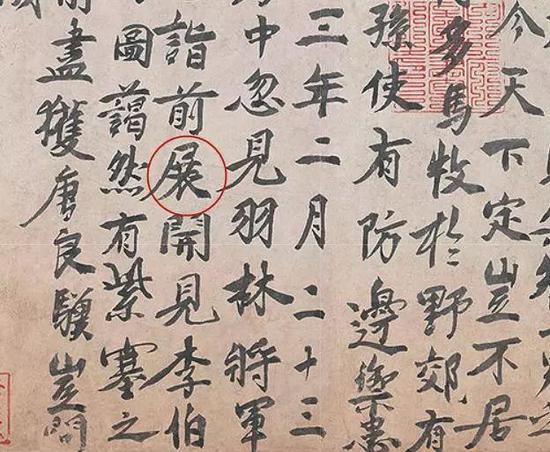 今天下定豈不居
多馬牧於野郊有
孫使有防邊禦患
三年二月二十三
中忽見羽林將軍
詣前展開見李伯
圖藹然有紫塞之
盡獲唐良驥豈問